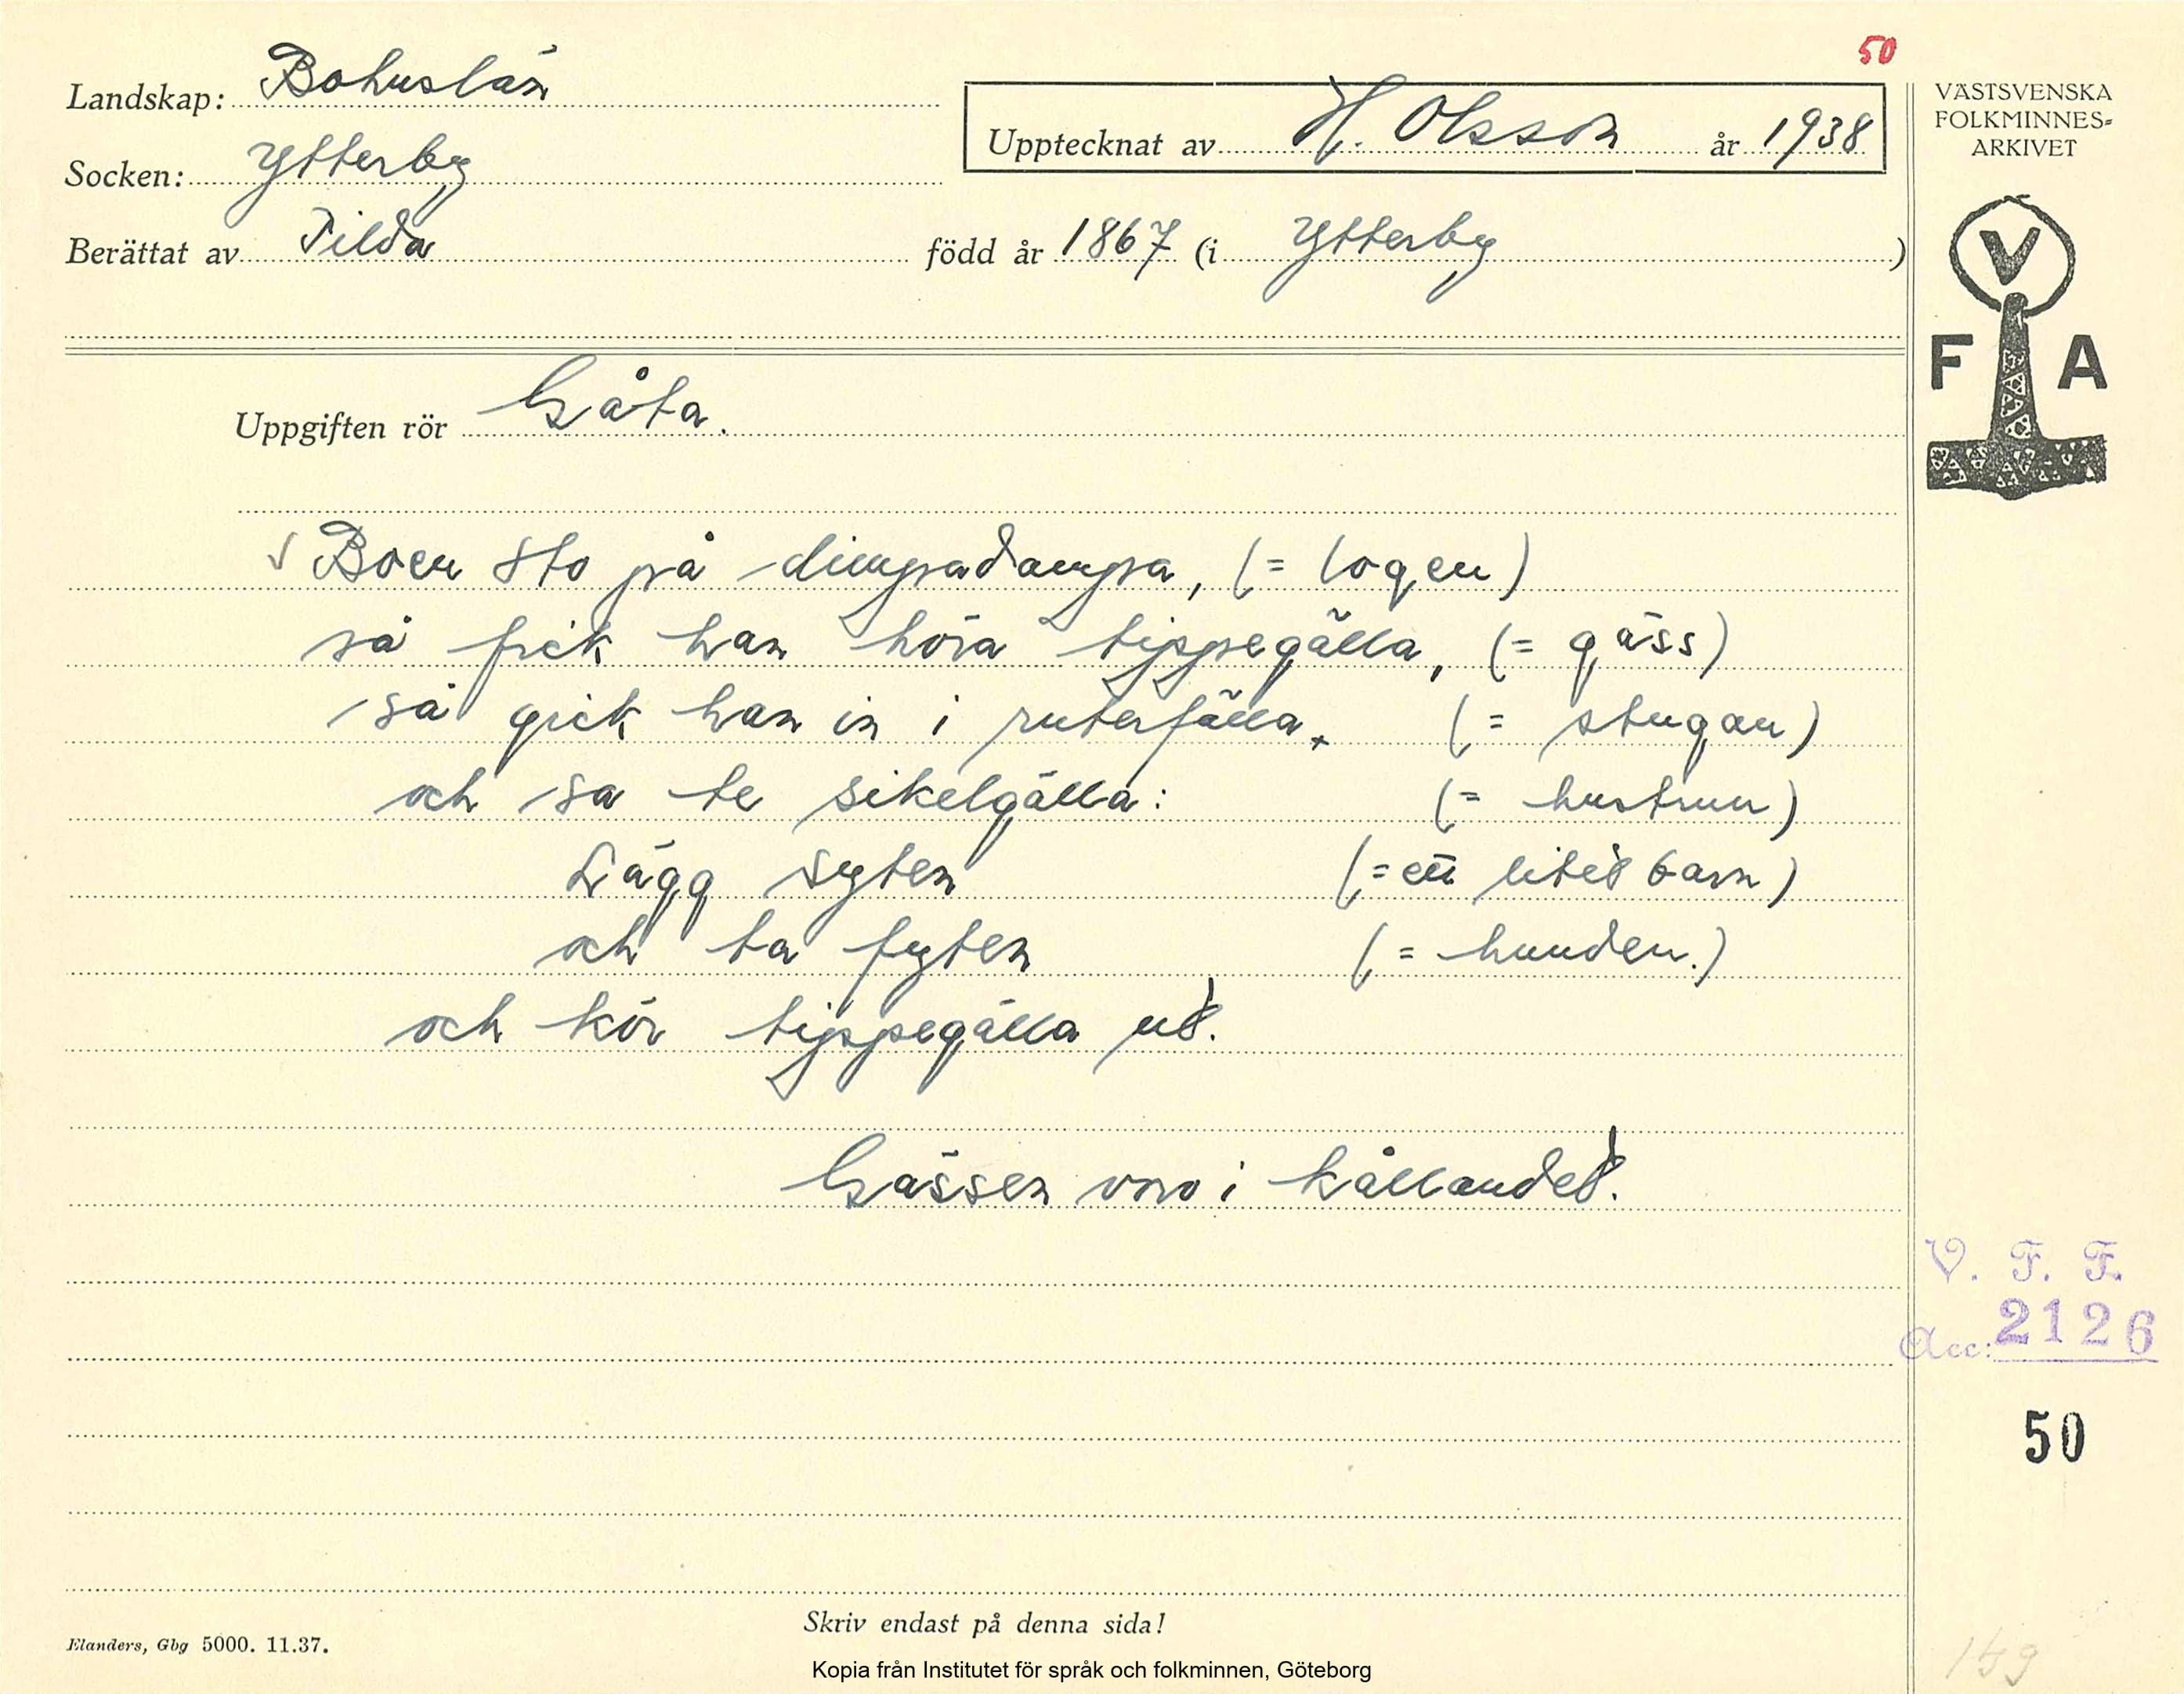 50
Landskap: Bohuslän
Upptecknat av H. Olsson år 1938
VÄSTSVENSKA
FOLKMINNES=
ARKIVET
Socken: Ytterby
Berättat av Tilda född år 1867 (i Ytterby)
V
F A
Uppgiften rör Gåta.
√ Boen sto på dimpadampa, (= logen)
så fick han höra tippegälla, (= gäss)
så gick han in i ruterfälla, (= stugan)
och sa te sikelgälla: (= hustrun)
Lägg syten (= ett litet barn)
och ta fyten (= hunden.)
och kör tippegälla ut.
Gässen voro i kållandet.
V. F. F.
Acc: 2126
50
Skriv endast på denna sida!
Elanders, Gbg 5000. 11.37.
Kopia från Institutet för språk och folkminnen, Göteborg